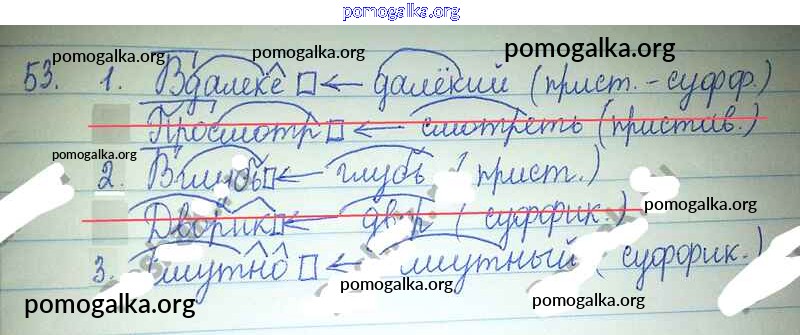 pomogalka.org
pomogalka.org pomogalka.org pomogalka.org
53. 1. Вдалеке ← далёкий (прист. - суфф.)
Просмотр ← смотреть (пристав.)
pomogalka.org
2. Вглубь ← глубь (прист.)
pomogalka.org
Дворик ← двор (суффик.)
3. Смутно ← смутный (суффик.)
pomogalka.org pomogalka.org pomogalka.org